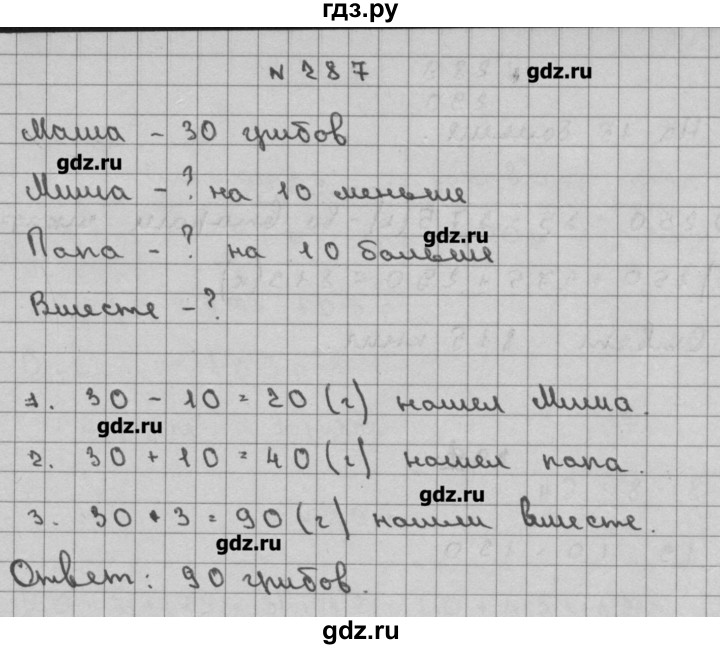 гдз.ру
N 287
gdz.ru
Маша - 30 грибов
gdz.ru
Миша - ? на 10 меньше
gdz.ru
Папа - ? на 10 больше
Вместе - ?
1. 30 - 10 = 20 (г) нашел Миша.
gdz.ru
2. 30 + 10 = 40 (г) нашел папа.
gdz.ru
3. 30 • 3 = 90 (г) нашли вместе.
gdz.ru
Ответ: 90 грибов.
gdz.ru